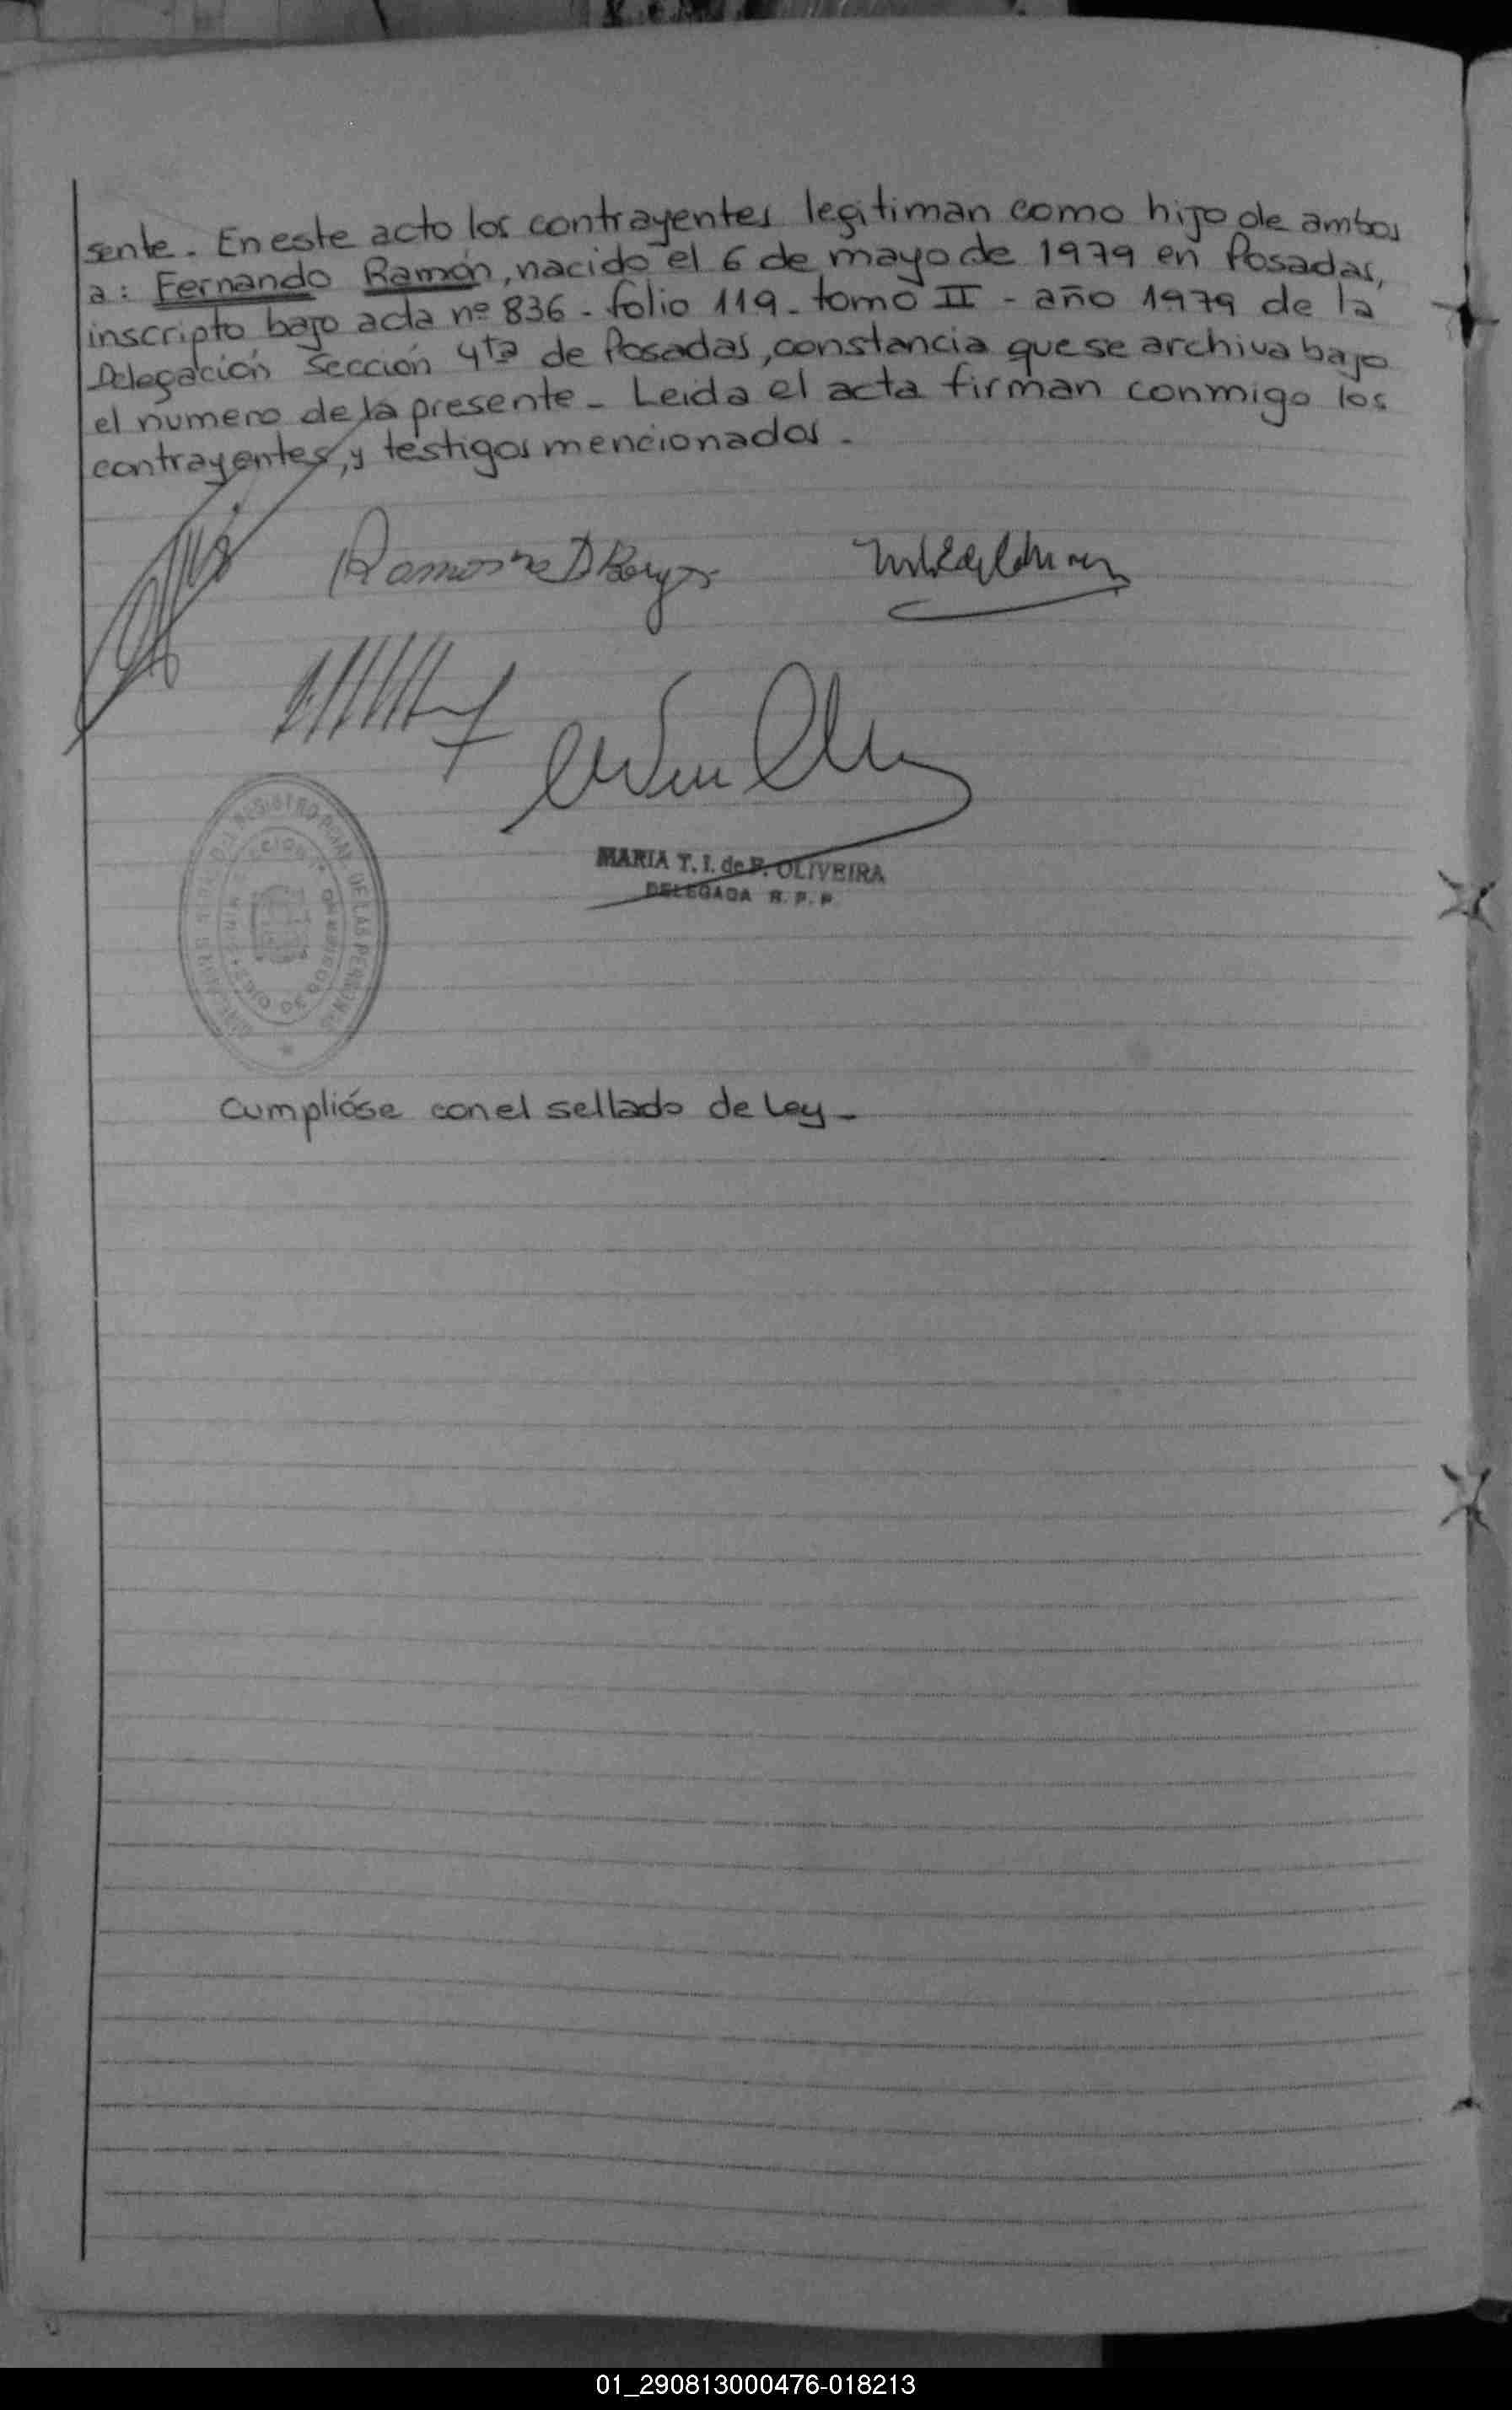 sente. En este acto los contrayentes legitiman como hijo de ambos
a: Fernando Ramón, nacido el 6 de mayo de 1979 en Posadas,
inscripto bajo acta nº 836 - folio 119 - tomo II - año 1979 de la
Delegación Sección 4ta de Posadas, constancia que se archiva bajo
el numero de la presente - Leida el acta firman conmigo los
contrayentes, y testigos mencionados -
MARIA T. I. de P. OLIVEIRA
DELEGADA R. P. P.
REGISTRO DE LAS PERSONAS
Cumplióse con el sellado de Ley -
01_290813000476-018213